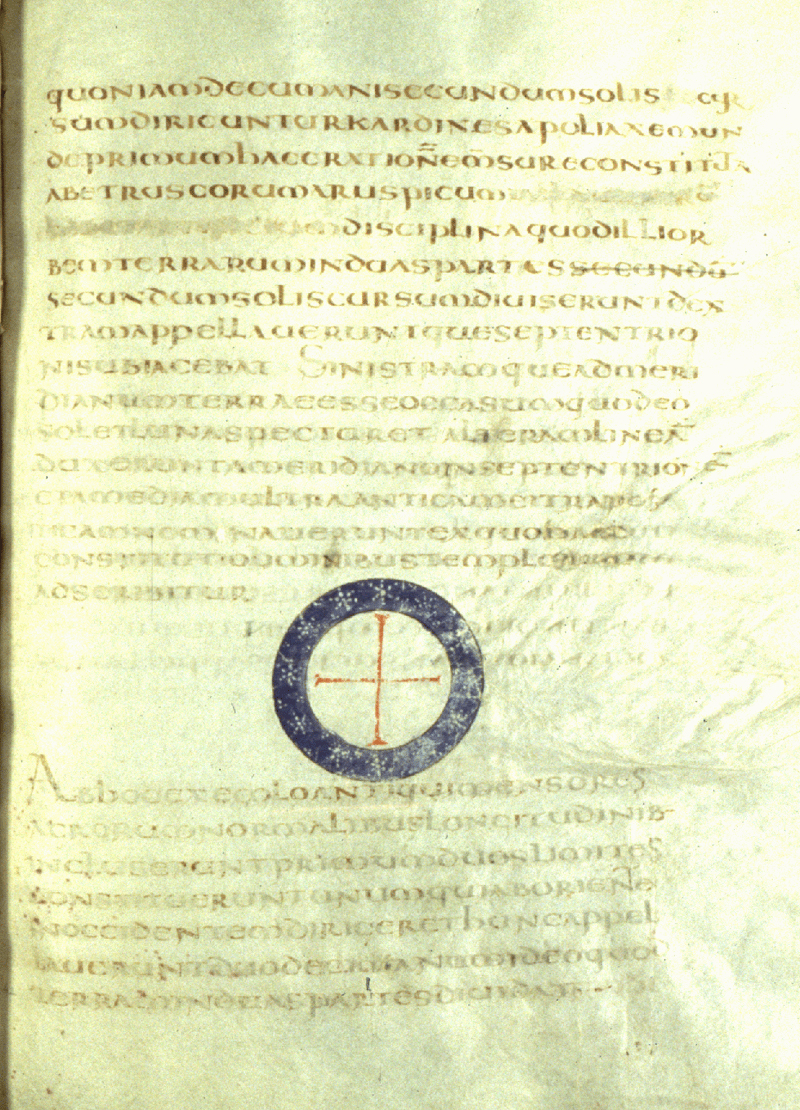 quoniamdecumanisecundumsolis cur
sumdiriguntur kardinesapoliaxemun
deprimumhaecrationem̄sureconstituta
abetruscorumaruspicum
disciplinaquodillior
bemterraruminduaspartesseecundū
secundumsoliscursumdiuiserun dex
tramappellaueruntqueseptentrio
nisubiacebat Sinistramqueadmeri
dianumterraeesseoccasumquodeo
soletlunaspectaret alteramlineā
duxeruntameridianoinseptentrion ē
etamediamultraanticamcitrapos
ticamnominaueruntexquohaec
constitutioluminibustemplorum
adscribitur
Abhocexemploantiquimensores
agrorumnormalibuslongitudinib
incluseruntprimumduoslimites
constitueruntunumquiaboriente
inoccidentemdirigerethuncappel
laueruntduodecimanumideoquod
terraminduaspartesdiuidat